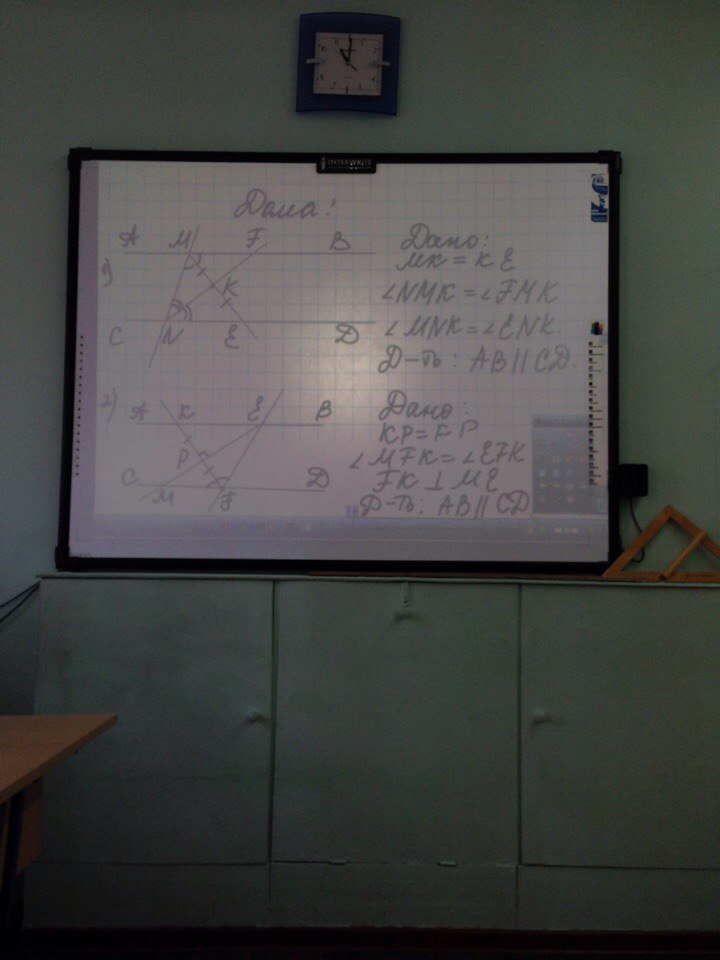 INTERWRITE
Дома!
A M F B
Дано:
MK = KE
1)
K
∠NMK = ∠FMK
∠MNK = ∠ENK.
C N E D
Д-ть: AB || CD.
2) A K E B
Дано:
KP = FP
P
∠MFK = ∠EFK
C D
FK ⊥ ME
M F
Д-ть: AB || CD